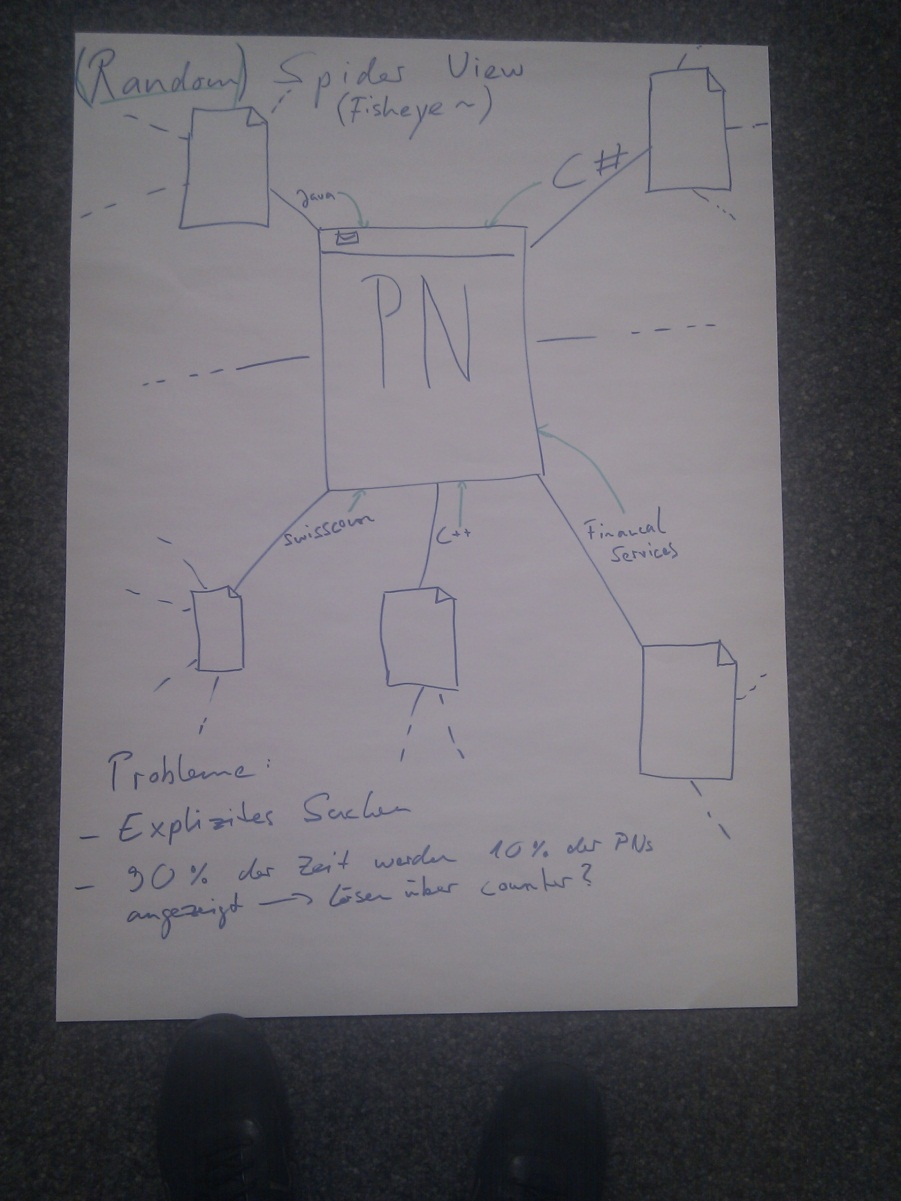 (Random) Spider View
(Fisheye ~)
Java
C#
PN
Swisscom
C++
Financal
Services
Probleme:
- Explizites Suchen
- 90% der Zeit werden 10% der PNs
angezeigt → Lösen über Counter?